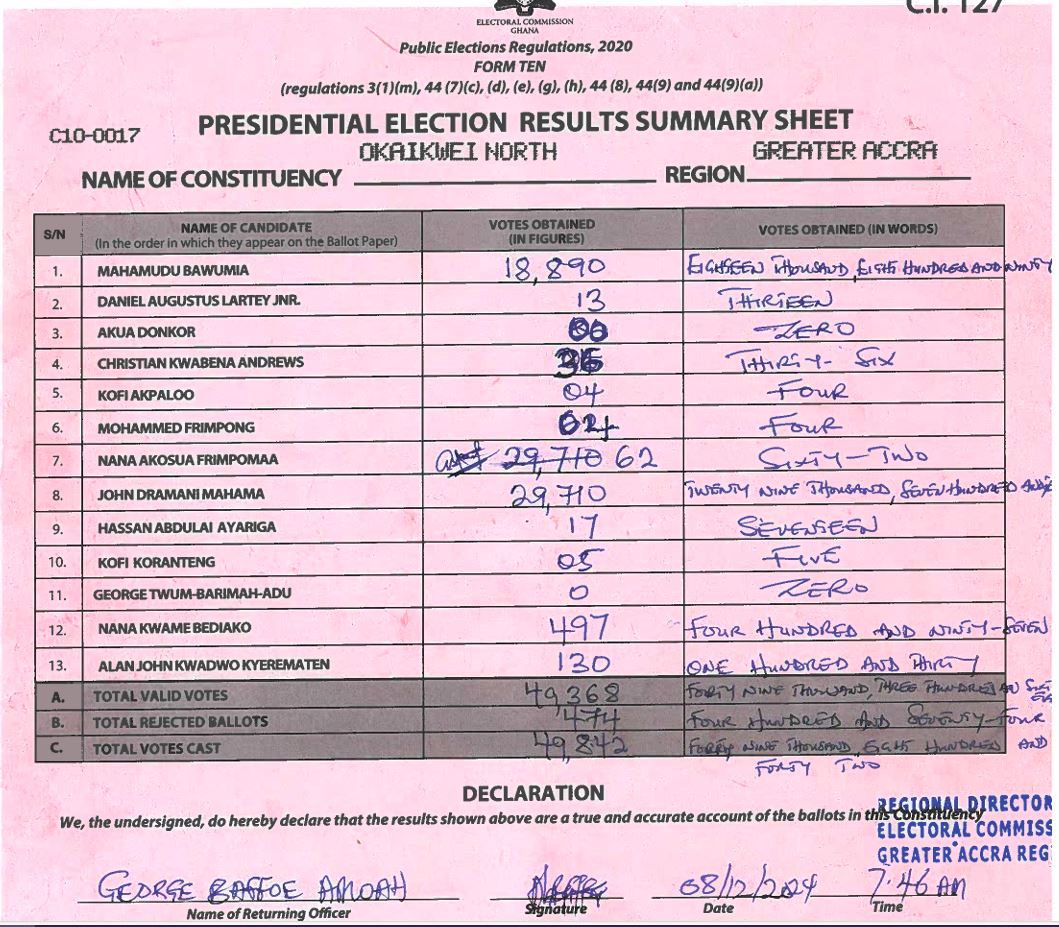 C.I. 127
ELECTORAL COMMISSION
GHANA
Public Elections Regulations, 2020
FORM TEN
(regulations 3(1)(m), 44 (7)(c), (d), (e), (g), (h), 44 (8), 44(9) and 44(9)(a))
C10-0017 PRESIDENTIAL ELECTION RESULTS SUMMARY SHEET
OKAIKWEI NORTH GREATER ACCRA
NAME OF CONSTITUENCY REGION
S/N NAME OF CANDIDATE (In the order in which they appear on the Ballot Paper) VOTES OBTAINED (IN FIGURES) VOTES OBTAINED (IN WORDS)
1. MAHAMUDU BAWUMIA 18,890 EIGHSEEN THOUSAND, EIGHT HUNDRED AND NINTY
2. DANIEL AUGUSTUS LARTEY JNR. 13 THIRTEEN
3. AKUA DONKOR 00 ZERO
4. CHRISTIAN KWABENA ANDREWS 36 THIRTY-SIX
5. KOFI AKPALOO 04 FOUR
6. MOHAMMED FRIMPONG 04 FOUR
7. NANA AKOSUA FRIMPOMAA 29,710 62 SIXTY-TWO
8. JOHN DRAMANI MAHAMA 29,710 TWENTY NINE THOUSAND, SEVEN HUNDRED AND
9. HASSAN ABDULAI AYARIGA 17 SEVENSEEN
10. KOFI KORANTENG 05 FIVE
11. GEORGE TWUM-BARIMAH-ADU 0 ZERO
12. NANA KWAME BEDIAKO 497 FOUR HUNDRED AND NINTY-SEVEN
13. ALAN JOHN KWADWO KYEREMATEN 130 ONE HUNDRED AND THIRTY
A. TOTAL VALID VOTES 49,368 FORTY NINE THOUSAND, THREE HUNDRED AN SIXTY
B. TOTAL REJECTED BALLOTS 474 FOUR HUNDRED AND SEVENTY-FOUR
C. TOTAL VOTES CAST 49,842 FORTY NINE THOUSAND EIGHT HUNDRED AND
FORTY TWO
DECLARATION
We, the undersigned, do hereby declare that the results shown above are a true and accurate account of the ballots in this Constituency
REGIONAL DIRECTOR
ELECTORAL COMMISS
GREATER ACCRA REG
GEORGE BAFFOE AMOAH 08/12/2024 7:46 AM
Name of Returning Officer Signature Date Time